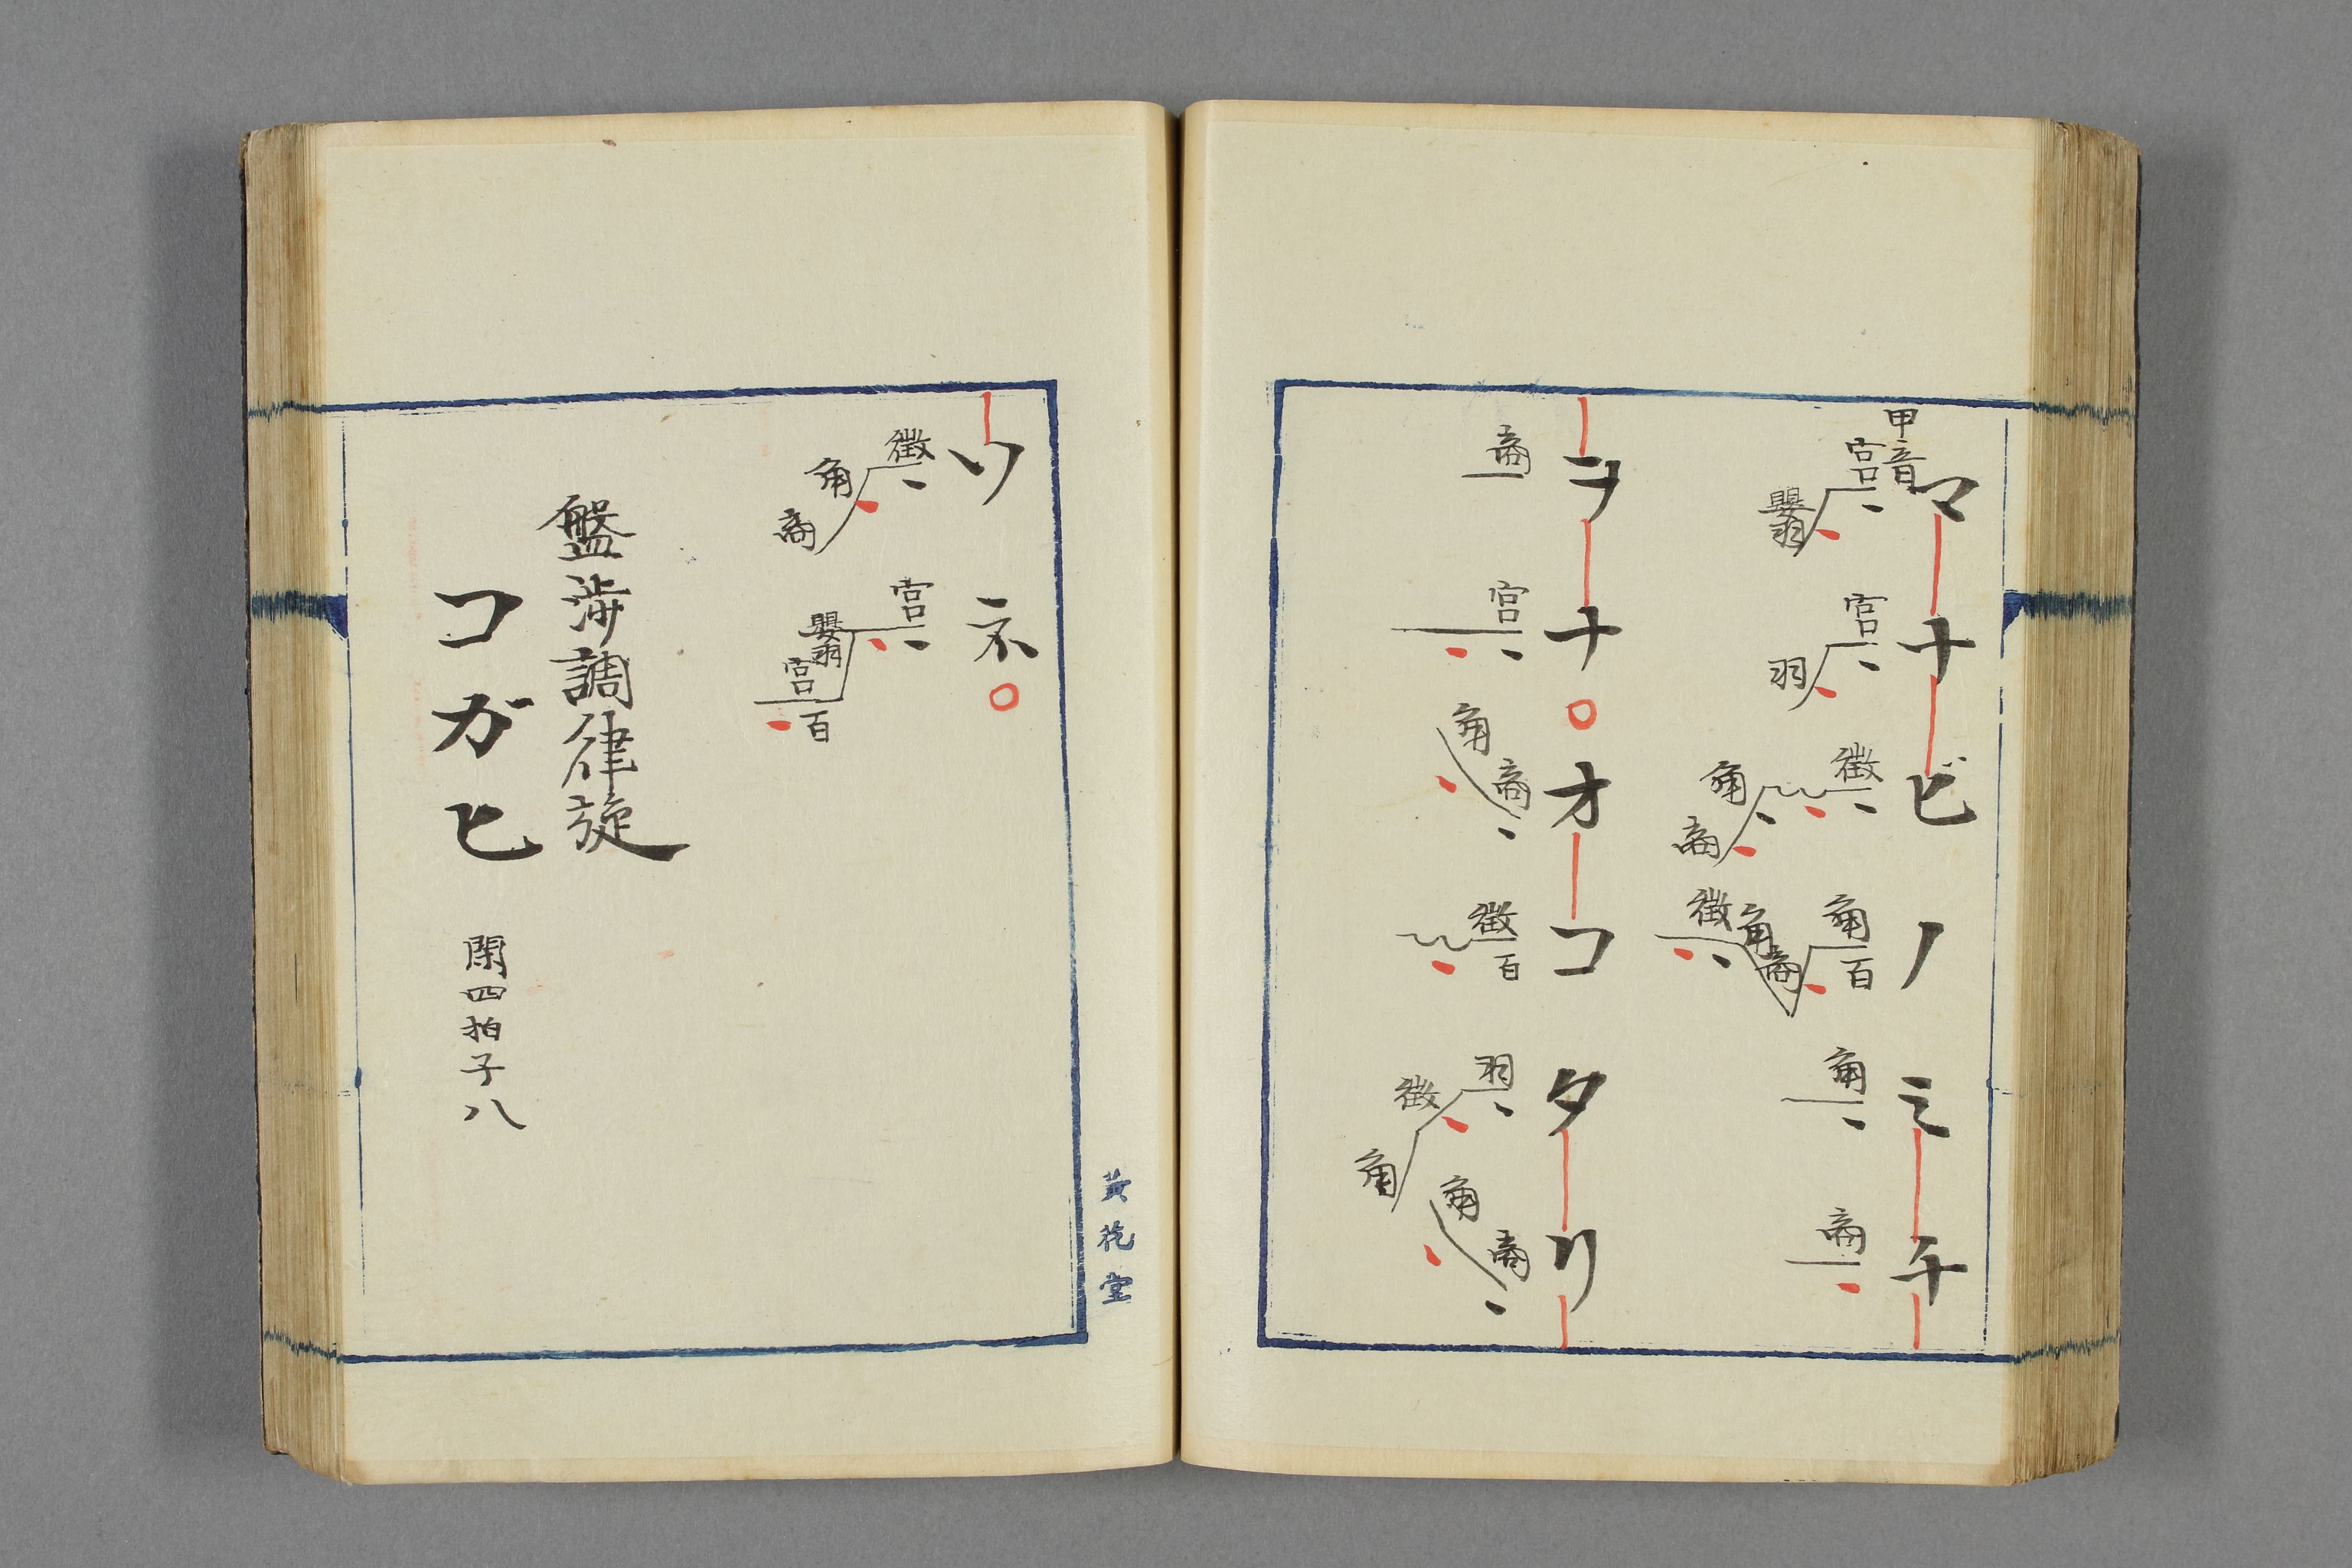 マナビノミチ
甲音
宮 嬰羽
宮 羽
徴 角 商
角 百 商 角 徴
角
商
ヲナオコタリ
商
宮
角 商
徴 百
羽 徴 角
角 商
ソネ
徴 角 商
宮 嬰羽 宮 百
盤渉調律旋
コガヒ 閑四拍子八
黄花堂